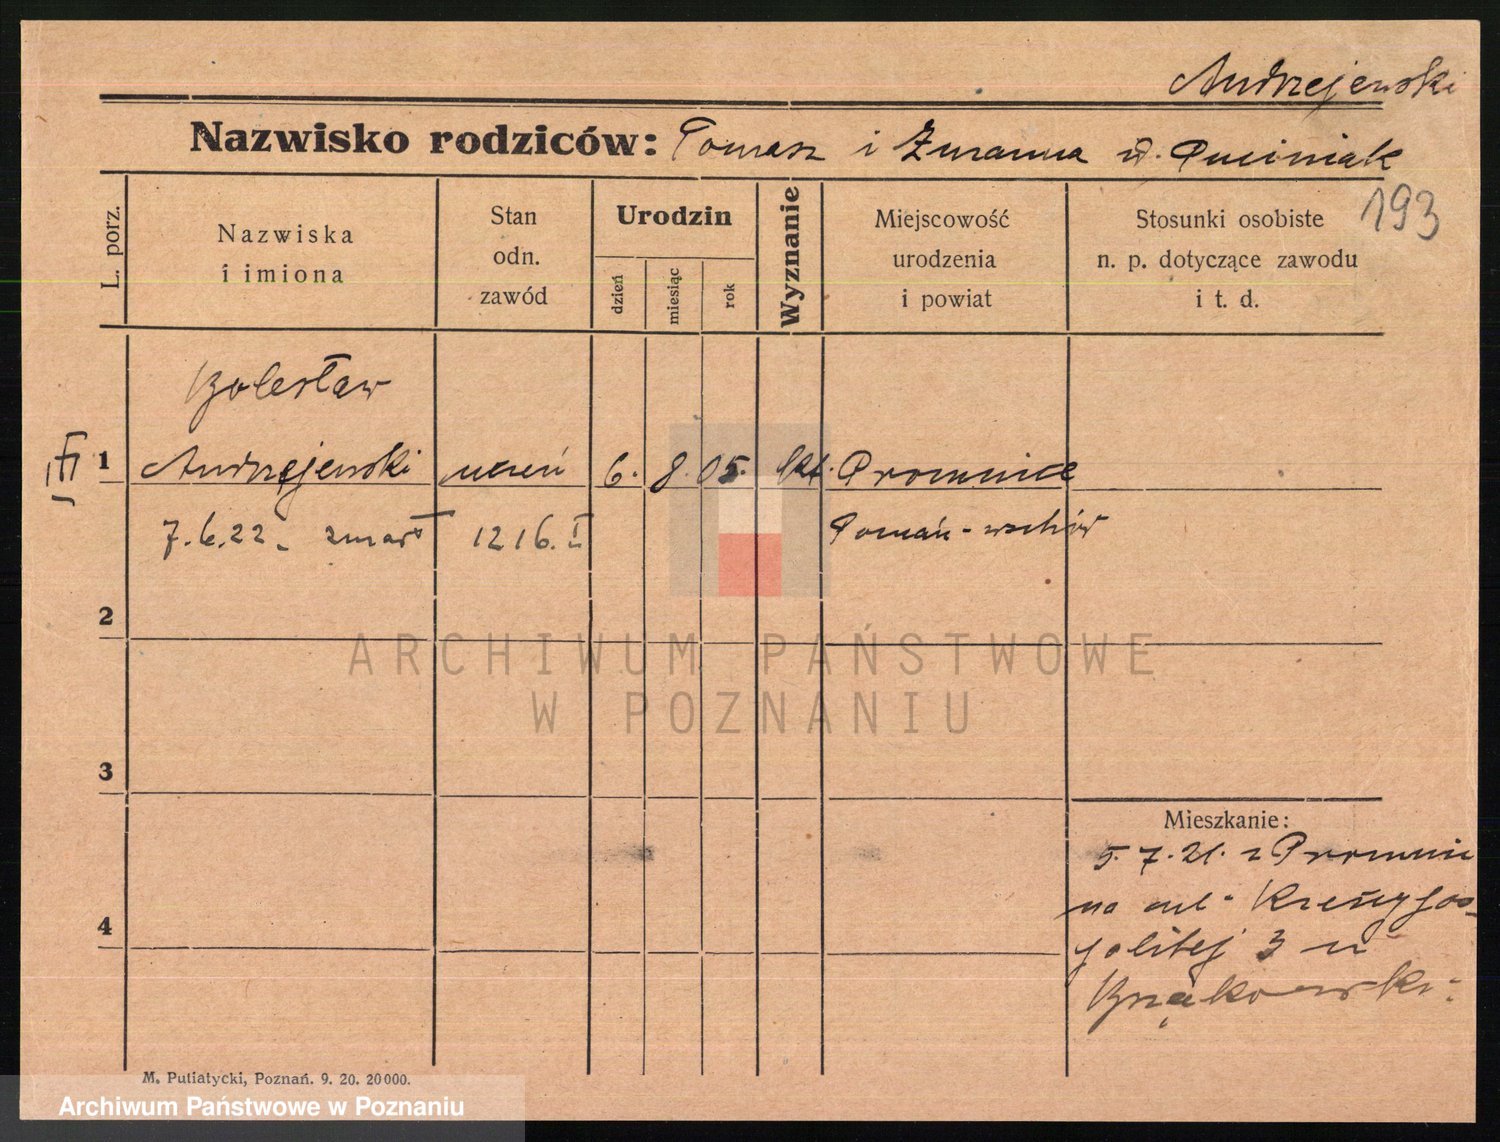 Andrzejewski
Nazwisko rodziców: Tomasz i Zuzanna d. Puciniak
193
L. porz.
Nazwiska
i imiona
Stan
odn.
zawód
Urodzin
dzień
miesiąc
rok
Wyznanie
Miejscowość
urodzenia
i powiat
Stosunki osobiste
n. p. dotyczące zawodu
i t. d.
Bolesław
III
1 Andrzejewski uczeń 6. 8. 05. kat. Promnice
7.6.22 zmarł 1216. I Poznań-wschów
2
3
4
Mieszkanie:
5.7.21. z Promnic
na ul. Rzeczypos-
politej 3 u
M. Putiatycki, Poznań. 9. 20. 20000.
ARCHIWUM PAŃSTWOWE
W POZNANIU
Archiwum Państwowe w Poznaniu